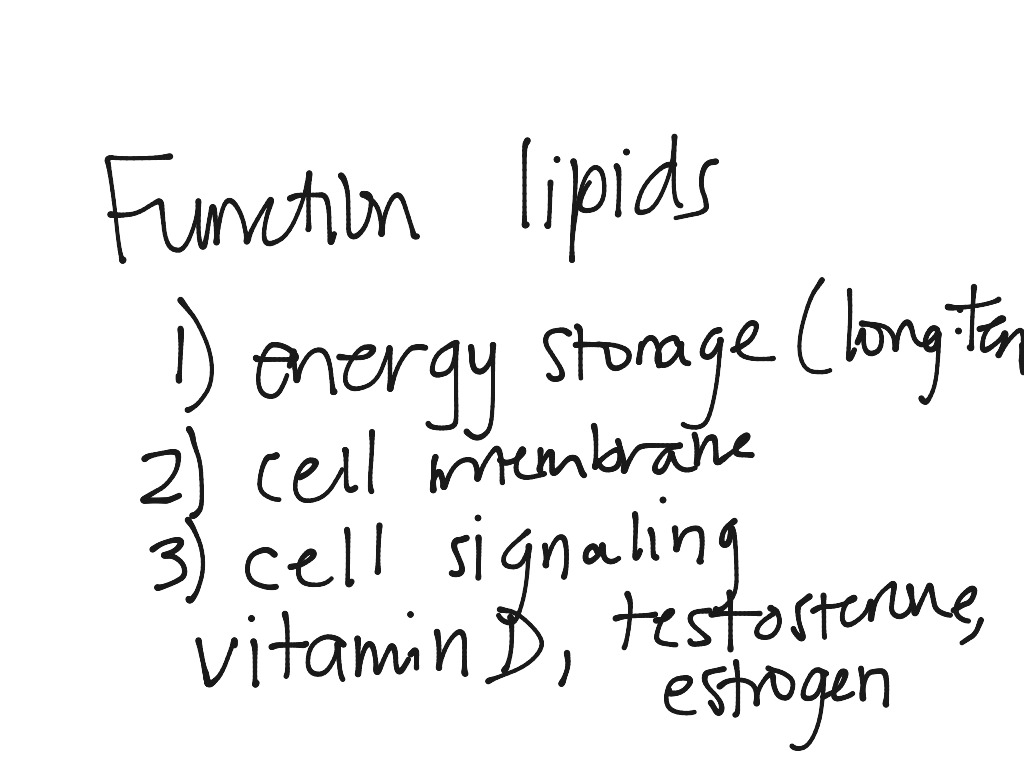 Function lipids
1) energy storage (long-ten
2) cell membrane
3) cell signaling
vitamin D, testosterone,
estrogen